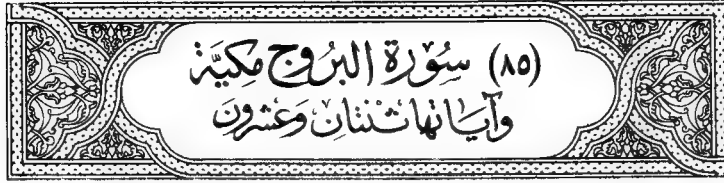 (٨٥) سُوْرَة البُرُوج مَكِيَّة
وَآيَاتهَا ثنْتَانِ وَعشرُونَ